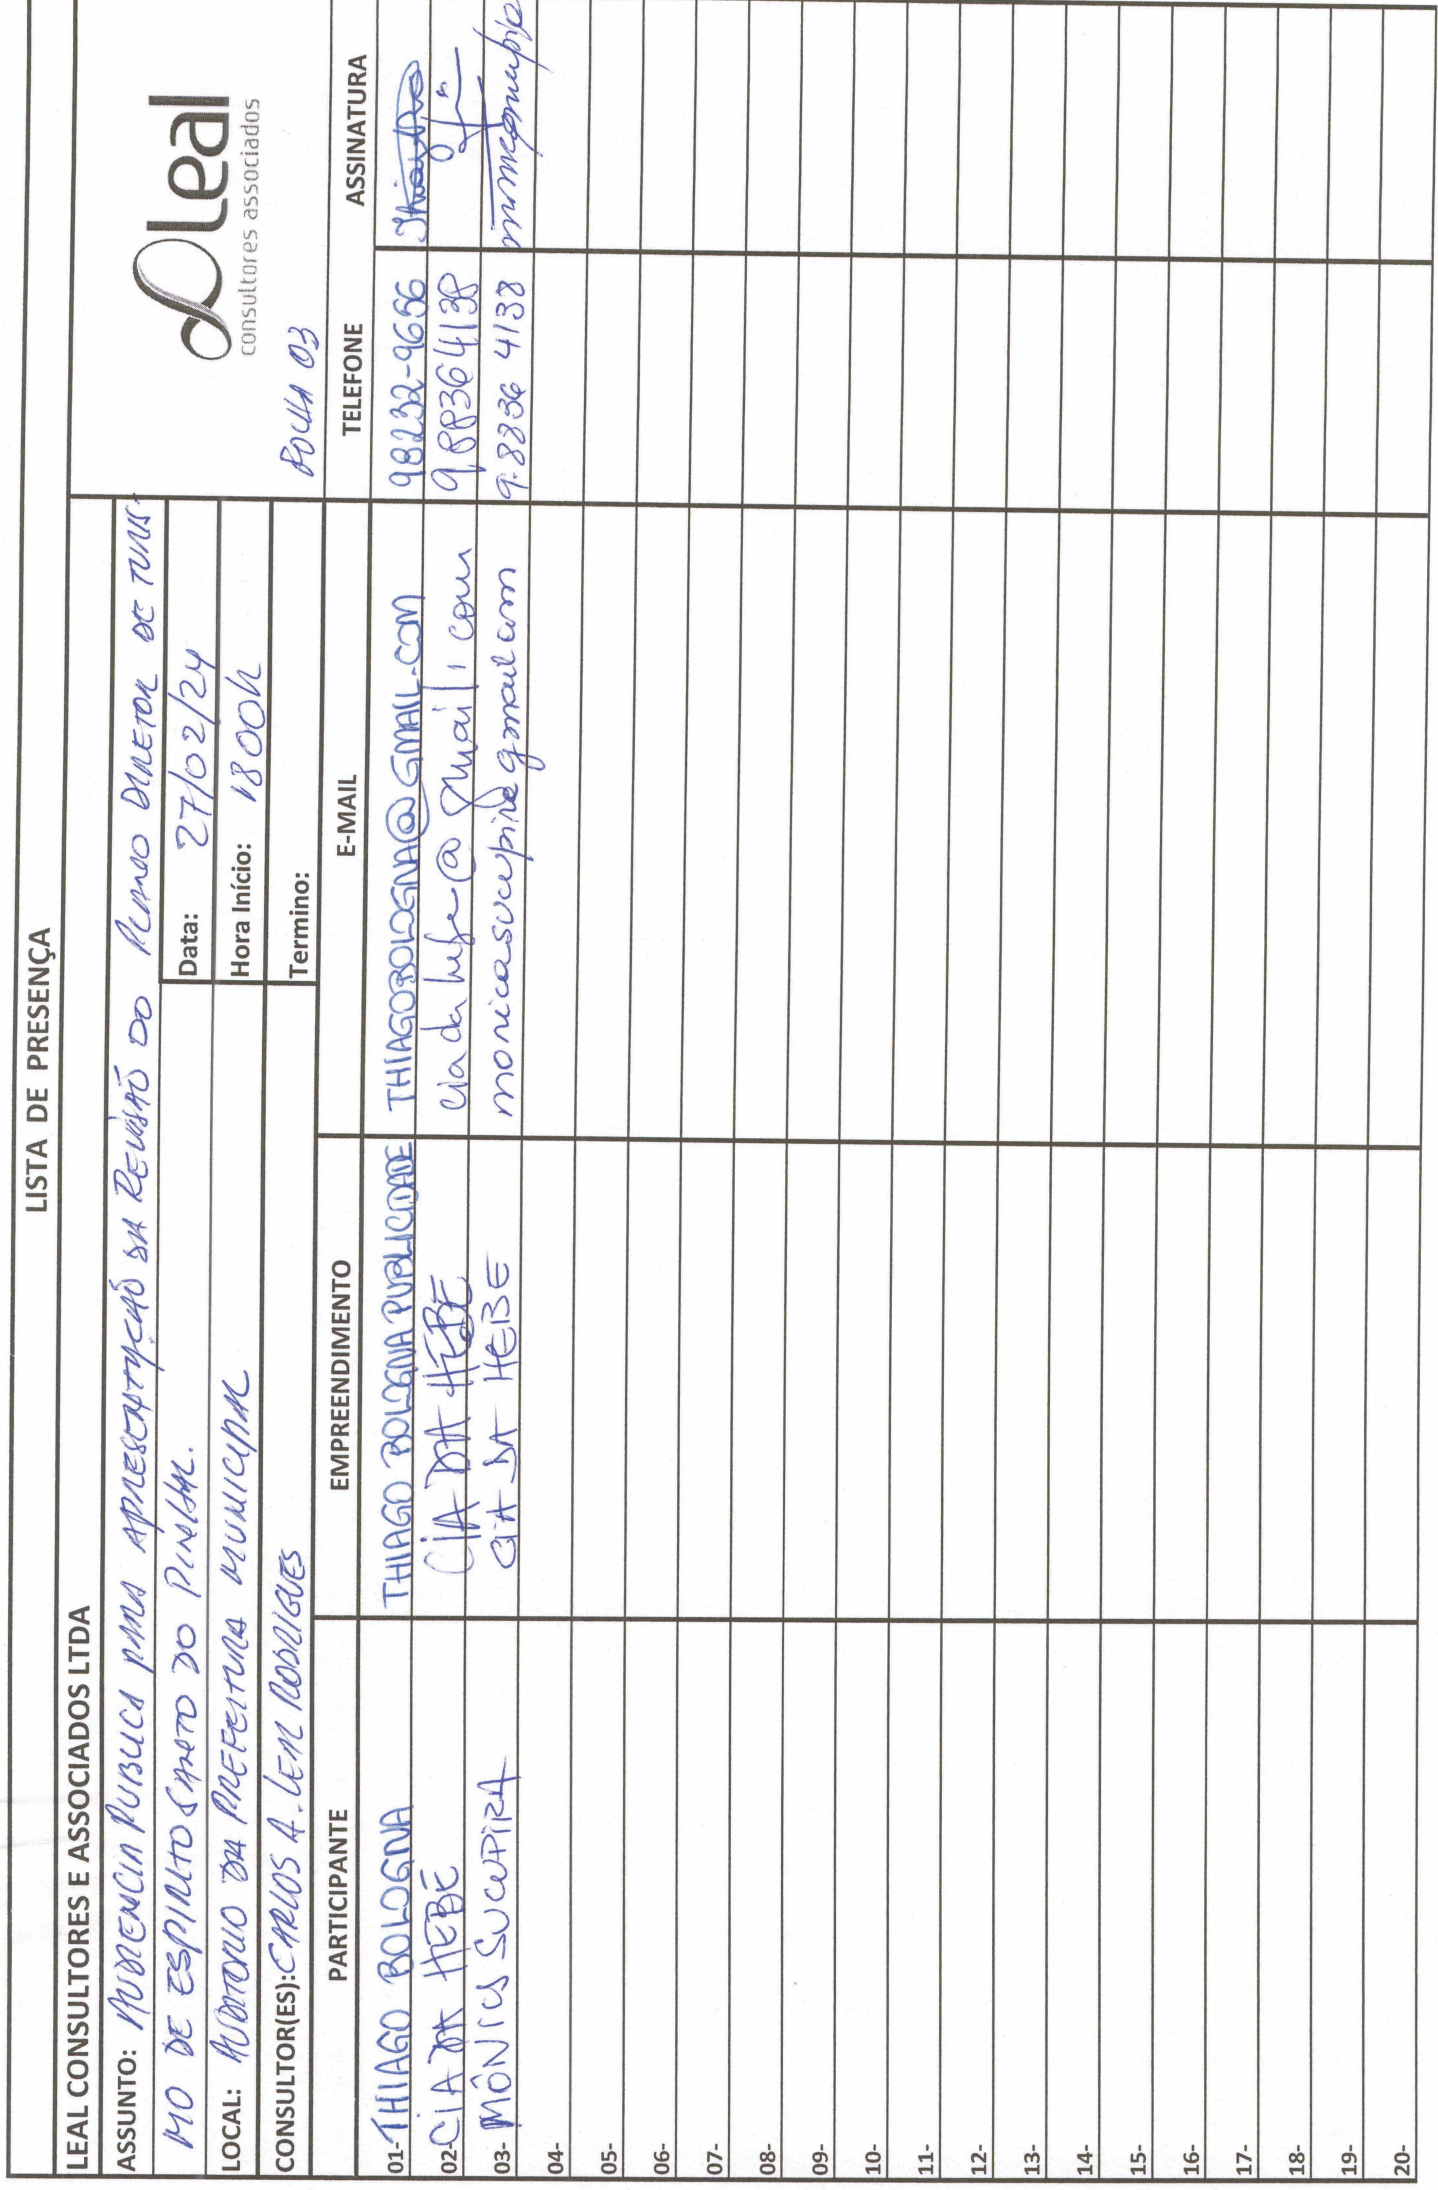 LISTA DE PRESENÇA
LEAL CONSULTORES E ASSOCIADOS LTDA
Leal
consultores associados
ASSUNTO: AUDIENCIA PUBLICA PARA APRESENTAÇÃO DA REVISÃO DO PLANO DIRETOR DE TURIS-
MO DE ESPIRITO SANTO DO PINHAL.
Data: 27/02/24
LOCAL: AUDITORIO DA PREFEITURA MUNICIPAL
Hora Início: 1800h
CONSULTOR(ES): CARLOS A. LEAL RODRIGUES
Termino:
FOLHA 03
PARTICIPANTE EMPREENDIMENTO E-MAIL TELEFONE ASSINATURA
01- THIAGO BOLOGNA THIAGO BOLOGNA PUBLICIDADE THIAGOBOLOGNA@GMAIL.COM 98232-9656
02- CIA DA HEBE CIA DA HEBE ciadahebe@gmail.com 988364138
03- MÔNICA SUCUPIRA CIA DA HEBE monicasucupira gmail com 9.8836 4138
04-
05-
06-
07-
08-
09-
10-
11-
12-
13-
14-
15-
16-
17-
18-
19-
20-